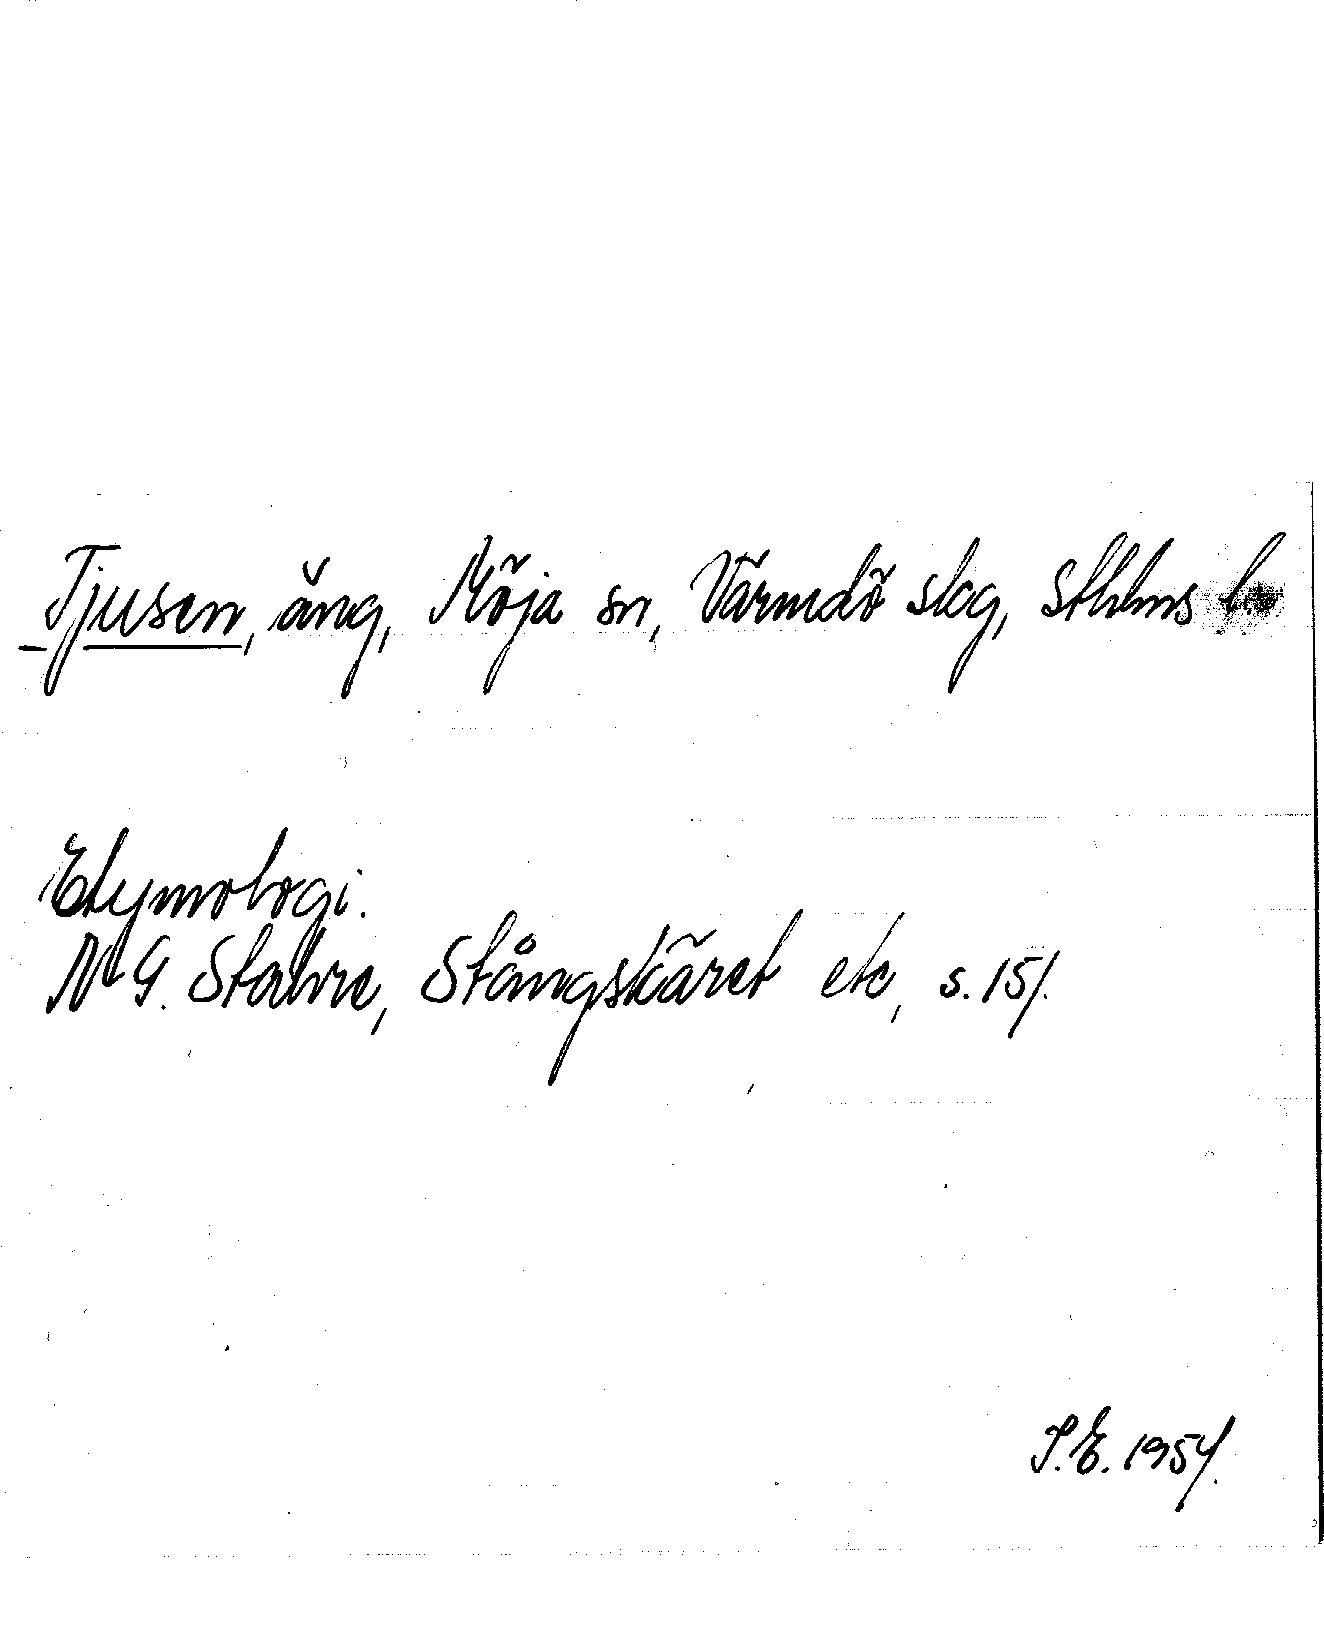 Tjusen, äng, Möja sn, Värmdö skg, Sthlms
Etymologi.
N G. Stahre, Stångskäret etc, s. 151.
S.E. 1954.